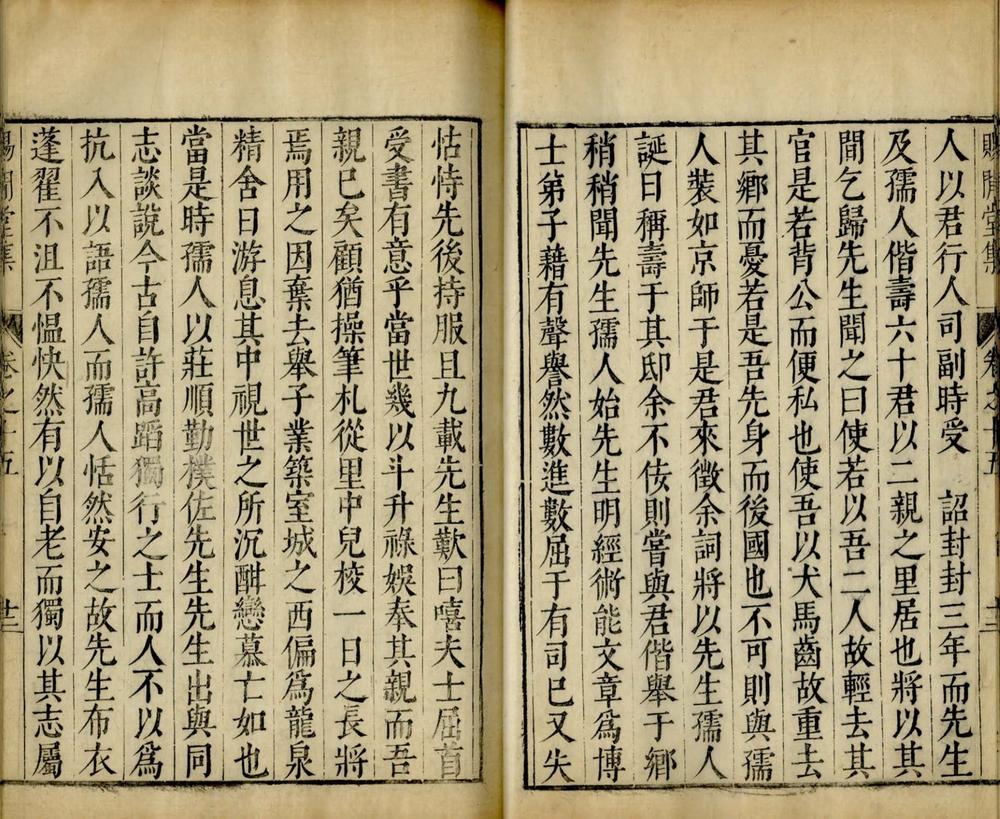 人以君行人司副時受　詔封封三年而先生
及孺人偕壽六十君以二親之里居也將以其
間乞歸先生聞之曰使若以吾二人故輕去其
官是若背公而便私也使吾以犬馬齒故重去
其鄉而憂若是吾先身而後國也不可則與孺
人裝如京師于是君來徵余詞將以先生孺人
誕日稱壽于其邸余不佞則嘗與君偕舉于鄉
稍稍聞先生孺人始先生明經術能文章爲博
士弟子藉有聲譽然數進數屈于有司已又失
怙恃先後持服且九載先生歎曰嘻夫士屈首
受書有意乎當世幾以斗升祿娛奉其親而吾
親已矣顧猶操筆札從里中兒校一日之長將
焉用之因棄去舉子業築室城之西偏爲龍泉
精舍日游息其中視世之所沉酣戀慕亡如也
當是時孺人以莊順勤樸佐先生先生出與同
志談說今古自許高蹈獨行之士而人不以爲
抗入以語孺人而孺人恬然安之故先生布衣
蓬翟不沮不慍快然有以自老而獨以其志屬
賜閒堂集　卷之十五